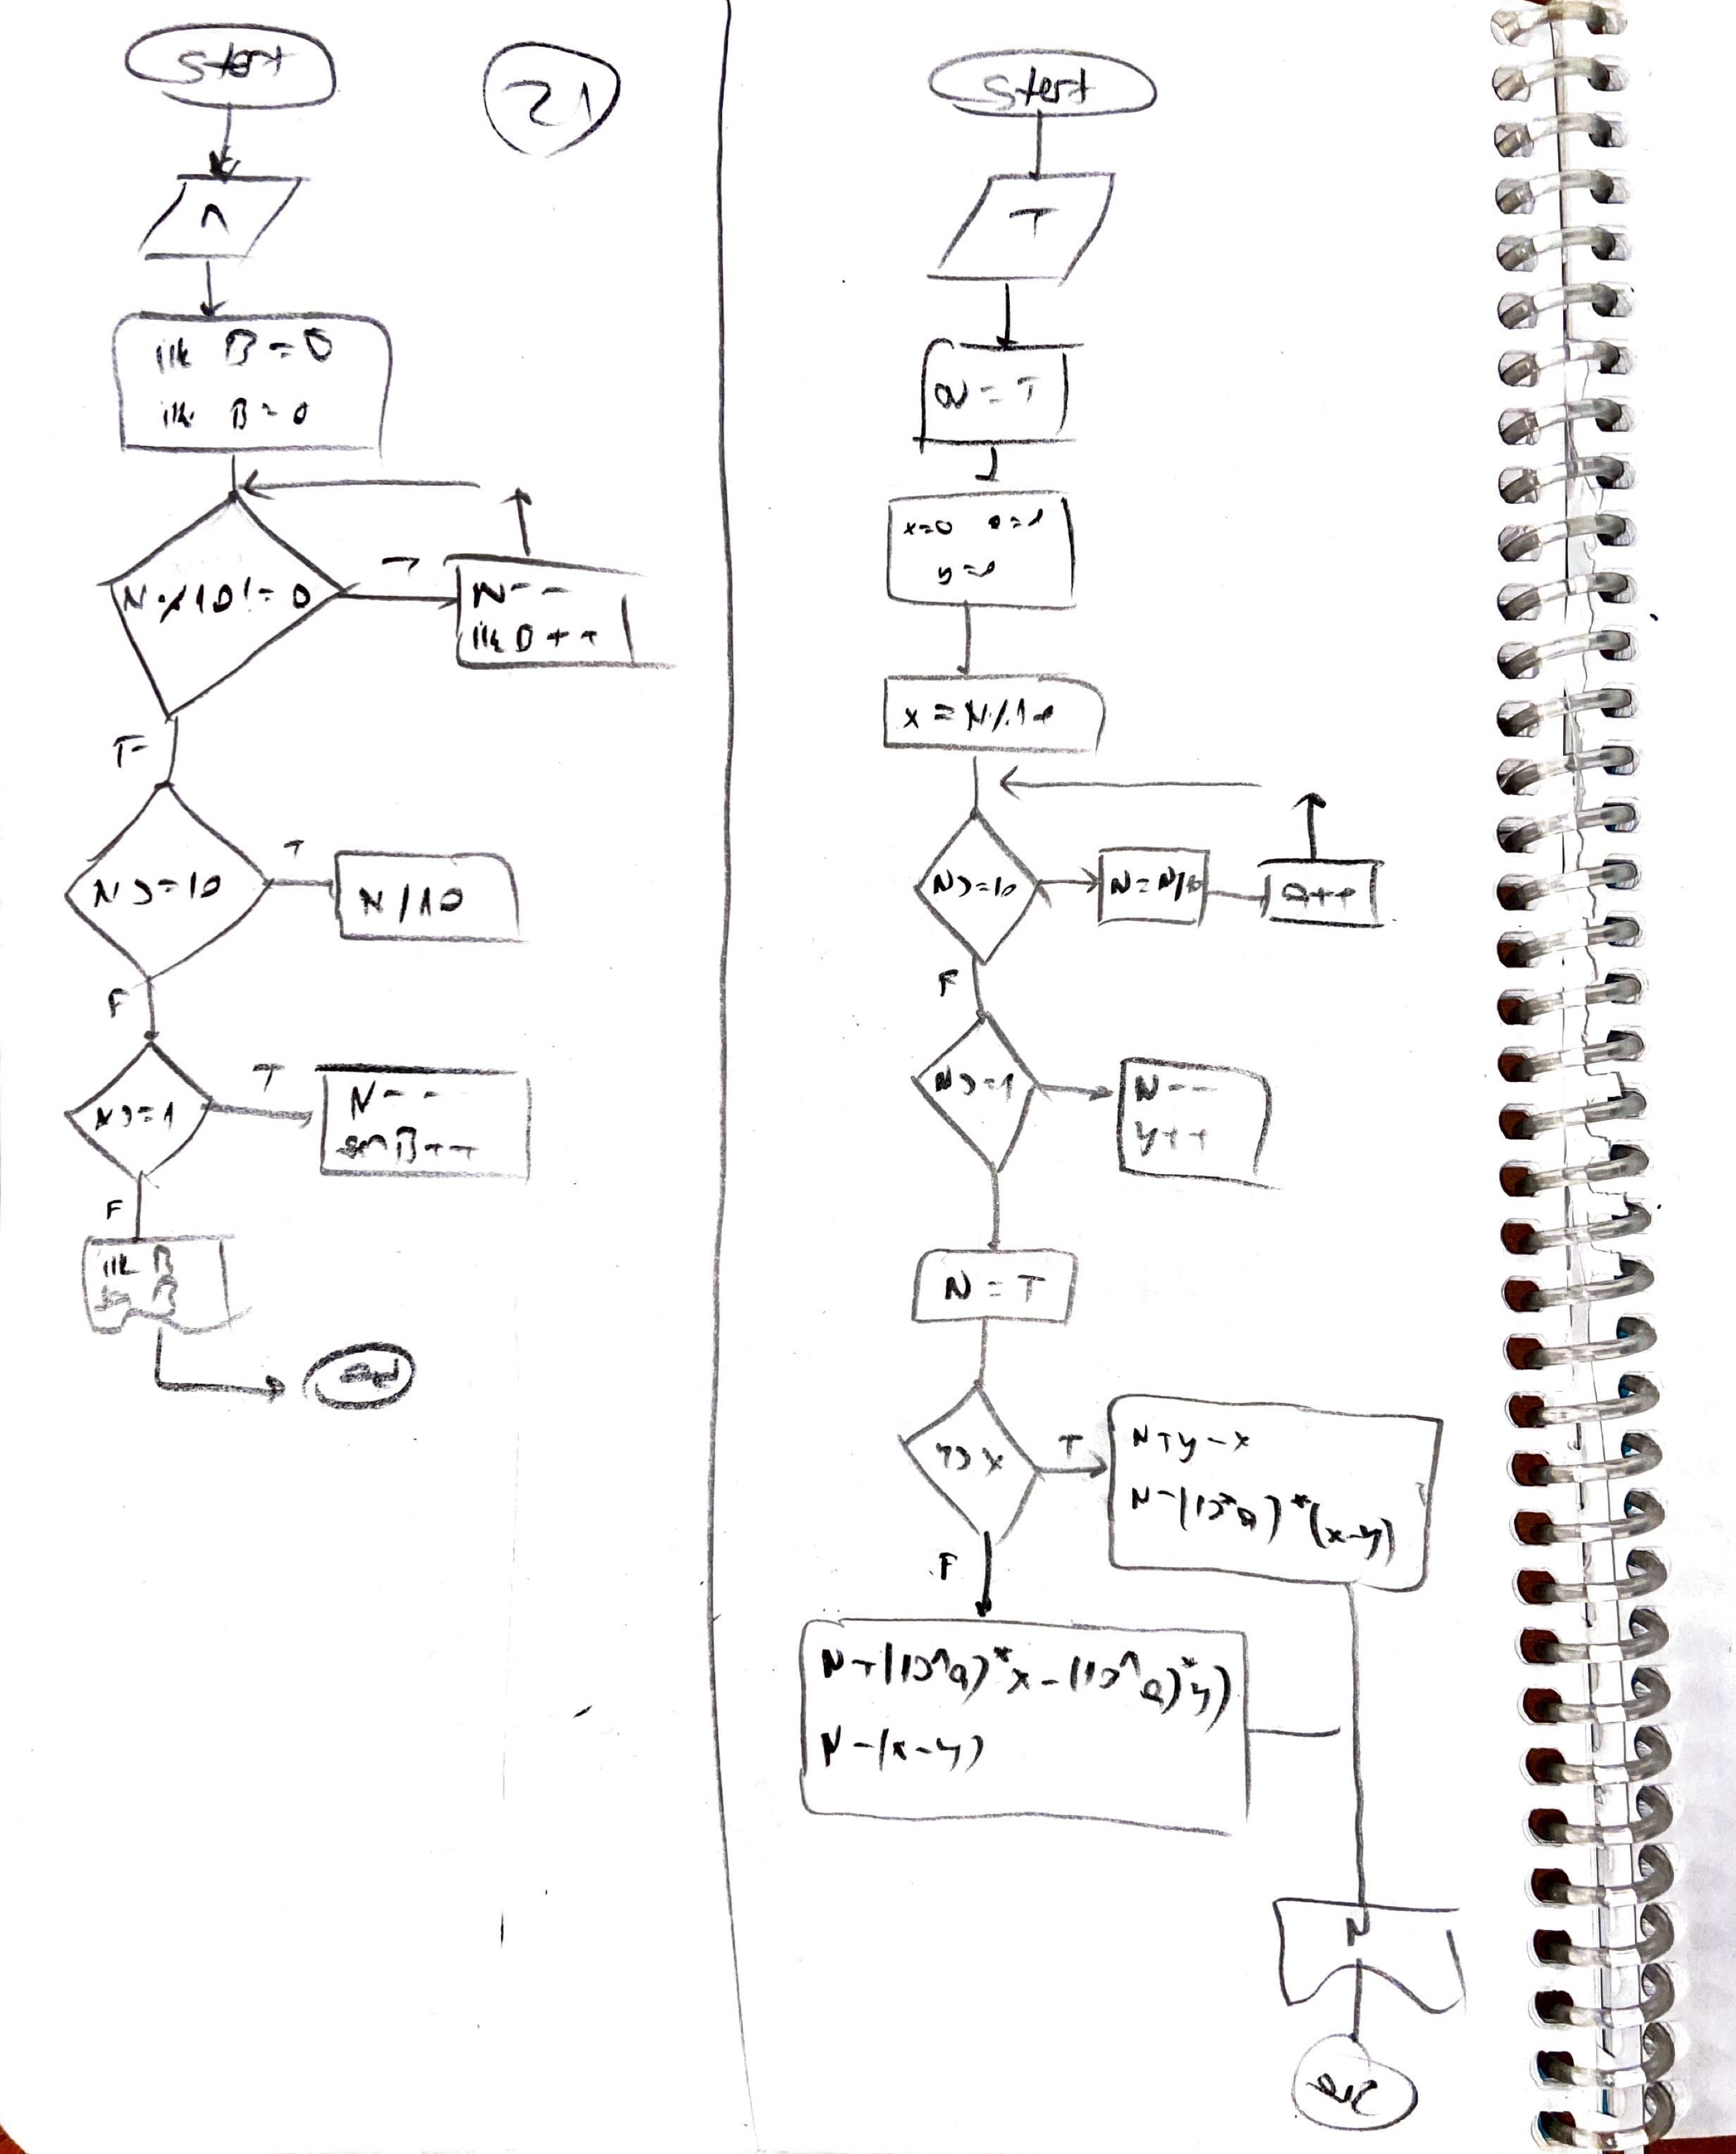 Start
21
N
ilk B=0
ilk B=0
N%10!=0
T
N--
ilk B++
F
N>=10
T
N/10
F
N>=1
T
N--
son B++
F
ilk B
son B
end
Start
T
N=T
x=0 a=1
y=0
x=N%10
N>=10
N=N/10
a++
F
N>=1
N--
y++
N=T
y>x
T
N+y-x
N-(10^a)*(x-y)
F
N+(10^a)*x-(10^a)*y)
N-(x-y)
N